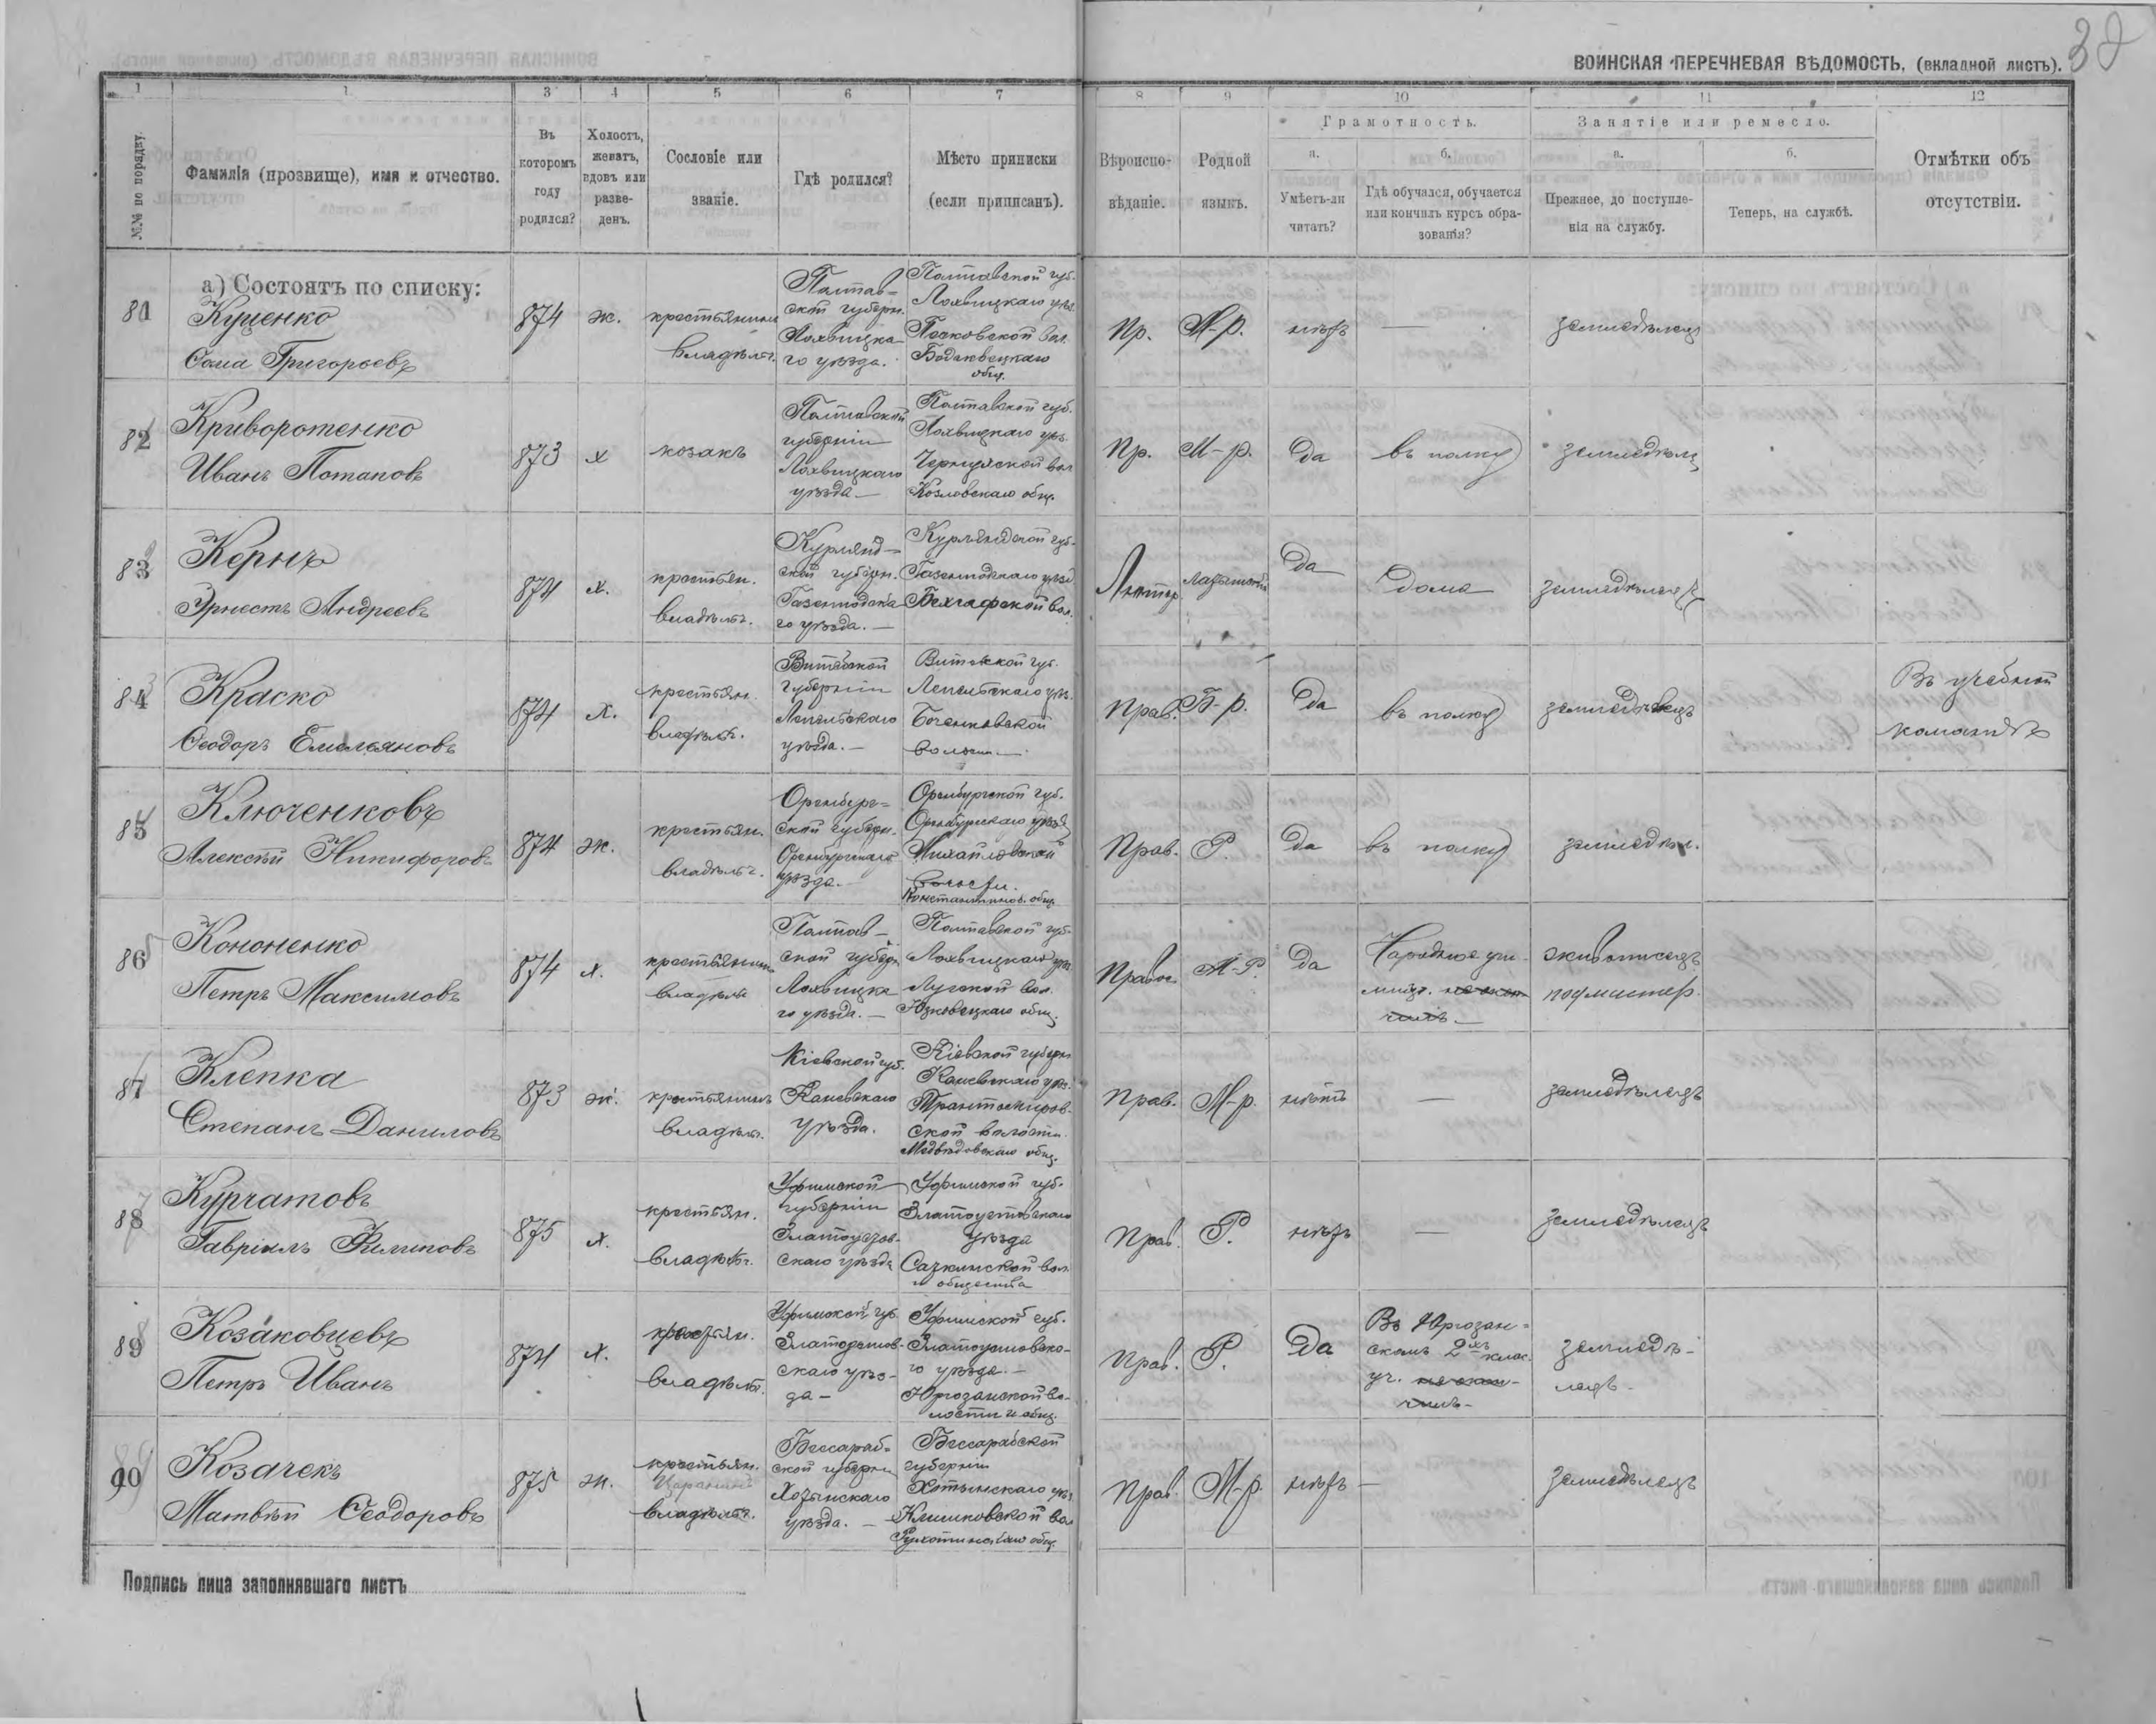 ВОИНСКАЯ ПЕРЕЧНЕВАЯ ВѢДОМОСТЬ, (вкладной листъ).
1 1 3 4 5 6 7 8 9 10 11 12
№№ по порядку.
Фамилія (прозвище), имя и отчество.
Въ которомъ году родился?
Холостъ, женатъ, вдовъ или разве-денъ.
Сословіе или званіе.
Гдѣ родился?
Мѣсто приписки (если приписанъ).
Вѣроиспо-вѣданіе.
Родной языкъ.
Грамотность.
а. Умѣетъ-ли читать?
б. Гдѣ обучался, обучается или кончилъ курсъ обра-зованія?
Занятіе или ремесло.
а. Прежнее, до поступле-нія на службу.
б. Теперь, на службѣ.
Отмѣтки объ отсутствіи.
а) Состоятъ по списку:
81
Куценко
Сама Григорьевъ
874
ж.
крестьянинъ
владѣльч.
Полтав-
ской губерн.
Лохвицка
го уѣзда.
Полтавской губ.
Лохвицкаго уѣз.
Песковской вол.
Бодаквецкаго
общ.
Пр.
М-р.
нѣтъ
—
земледѣлецъ
82
Криворотенко
Иванъ Потаповъ
873
х
козакъ
Полтавской
губерніи
Лохвицкаго
уѣзда —
Полтавской губ.
Лохвицкаго уѣз.
Чернухской вол
Козловскаго общ.
Пр.
М-р.
Да
въ полку
земледѣлец
83
Кернъ
Эрнестъ Андреевъ
874
х.
крестьян.
владѣльч.
Курлянд-
ской губерн.
Газенподска
го уѣзда. —
Курляндской губ.
Газенподскаго уѣзд
вол.
Лютер
Латышскій
Да
Дома
земледѣлецъ
84
Краско
Ѳеодоръ Емельяновъ
874
х.
крестьян.
владѣльч.
Витебской
губерніи
Лепельскаго
уѣзда. —
Витебской губ.
Лепельскаго уѣз.
Боченковской
волости —
Прав.
Б-р.
Да
въ полку
земледѣлецъ
Въ учебной
командѣ
85
Ключенковъ
Алексѣй Никифоровъ
874
ж.
крестьян.
владѣльч.
Оренбург-
ской губерн.
Оренбургскаго
уѣзда. —
Оренбургской губ.
Оренбургскаго уѣзд
Михайловской
волости.
Константинов. общ.
Прав.
Р.
Да
въ полку
земледѣл.
86
Кононенко
Петръ Максимовъ
874
х.
крестьянинъ
владѣльч
Полтав-
ской губерн
Лохвицка
го уѣзда. —
Полтавской губ.
Лохвицкаго уѣз.
Луцкой вол.
Юзковецкаго общ.
Правос.
М-Р.
Да
Народное учи-
лище. не окон
чилъ —
живописецъ
подмастер.
87
Клепка
Степанъ Даниловъ
873
ж.
крестьянинъ
владѣльч.
Кіевской губ.
Каневскаго
уѣзда.
Кіевской губерн
Каневскаго уѣз.
Трактомиров-
ской волости
Медвѣдовскаго общ.
Прав.
М-р.
нѣтъ
—
земледѣлецъ
88
Курчатовъ
Гавріилъ Филиповъ
875
х.
крестьян.
владѣльч.
Уфимской
губерніи
Златоустов-
скаго уѣзда
Уфимской губ.
Златоустовскаго
уѣзда
Саткинской вол.
и общества
Прав.
Р.
нѣтъ
—
земледѣлецъ
89
Козаковцевъ
Петръ Иванъ
874
х.
крестьян.
владѣльч.
Уфимской губ.
Златоустов-
скаго уѣз-
да —
Уфимской губ.
Златоустовска-
го уѣзда. —
Юрюзанской во-
лости и общ.
Прав.
Р.
Да
Въ Юрюзан-
скомъ 2хъ клас.
уч. не окон-
чилъ —
земледѣ-
лецъ —
90
Козачекъ
Матвѣй Ѳеодоровъ
875
ж.
крестьян.
Царанинъ
владѣльч.
Бессараб-
ской губерни
Хотынскаго
уѣзда. —
Бессарабской
губерніи
Хотынскаго уѣз.
Клишковской вол
Рухотинскаго общ.
Прав.
М-р.
нѣтъ
—
земледѣлецъ
Подпись лица заполнявшаго листъ